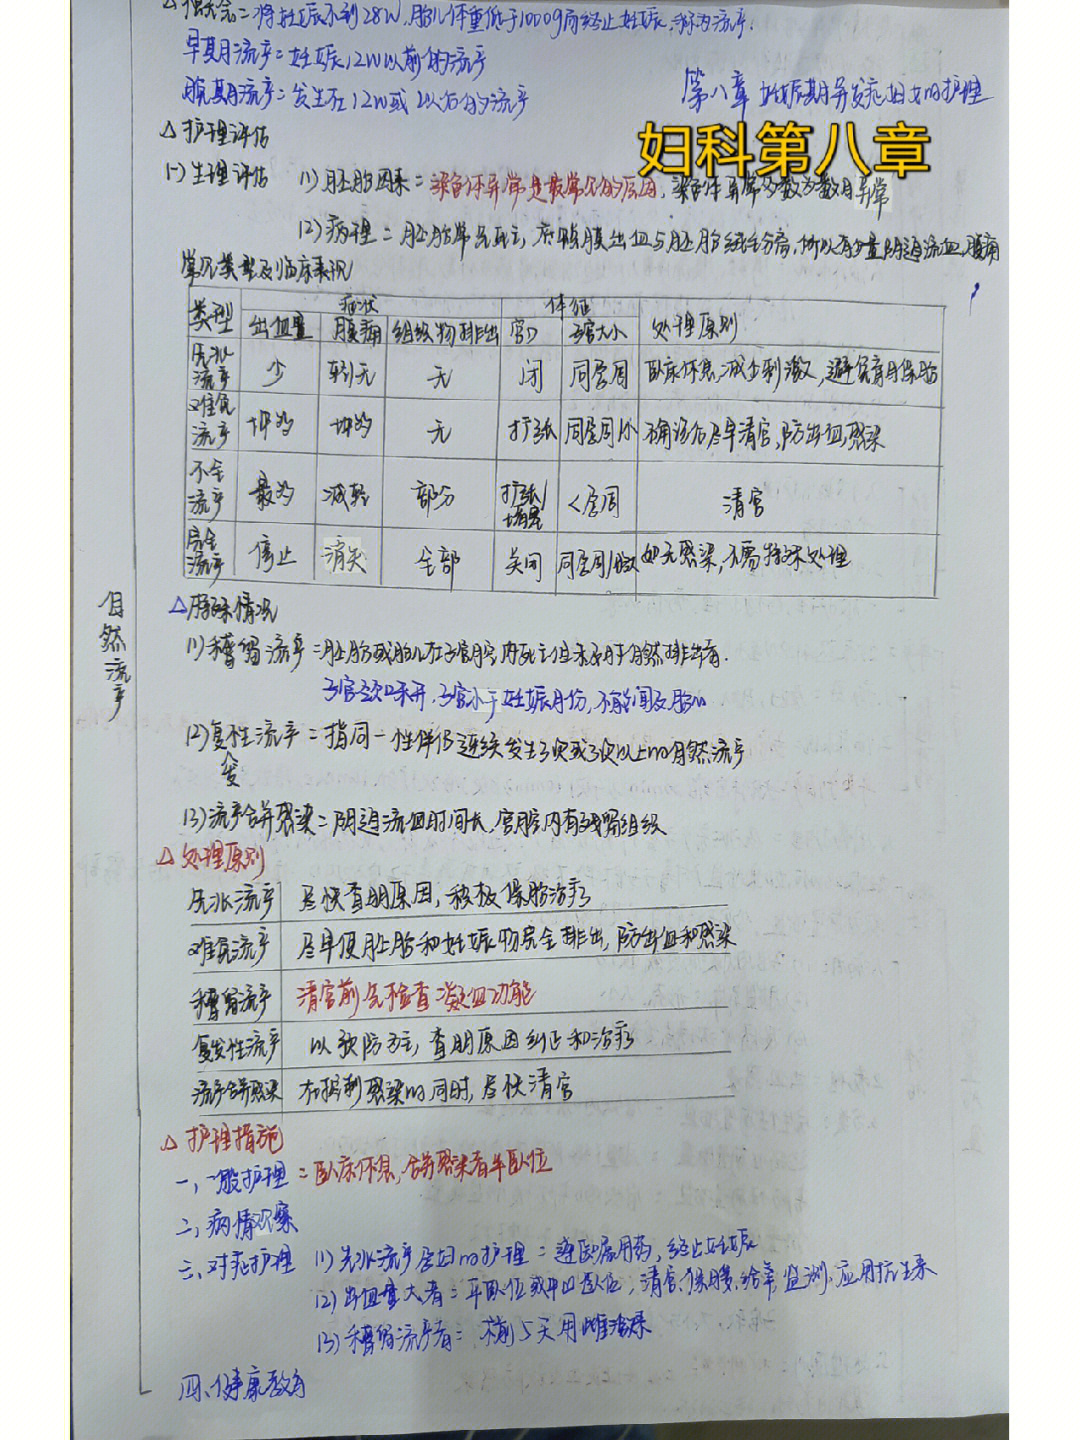 △概念=将妊娠不到28W,胎儿体重低于1000g而终止妊娠,称为流产.
早期流产=妊娠12W以前的流产
晚期流产=发生在12W或以后的流产
第八章 妊娠期并发症妇女的护理
妇科第八章
△护理评估
(一)生理评估 (1)胚胎因素=染色体异常是最常见的原因,染色体异常多数为数目异常
(2)病理=胚胎常先死亡,底蜕膜出血与胚胎绒毛分离,所以有少量阴道流血,腹痛
常见类型及临床表现
类型 症状 体征 处理原则
出血量 腹痛 组织物排出 宫口 子宫大小
先兆流产 少 轻/无 无 闭 同孕周 卧床休息,减少刺激,避免育用保胎
难免流产 增多 增多 无 扩张 同孕周/小 确诊后尽早清宫,防出血,感染
不全流产 最多 减轻 部分 扩张/堵塞 <孕周 清宫
完全流产 停止 消失 全部 关闭 同孕周/ 如无感染,不需特殊处理
自然流产
△特殊情况
(1)稽留流产=胚胎或胎儿在子宫腔内死亡但未及时自然排出者.
子宫颈口未开,子宫小于妊娠月份,不能闻及胎心
(2)复性流产=指同一性伴侣连续发生3次或3次以上的自然流产
发
(3)流产合并感染=阴道流血时间长,宫腔内有残留组织
△处理原则
先兆流产 尽快查明原因,积极保胎治疗
难免流产 尽早使胚胎和妊娠物完全排出,防出血和感染
稽留流产 清宫前先检查凝血功能
复发性流产 以预防为主,查明原因纠正和治疗
流产合并感染 在控制感染的同时,尽快清宫
△护理措施
一,一般护理=卧床休息,合并感染者半卧位
二,病情观察
三、对症护理 (1)先兆流产孕妇的护理=遵医嘱用药,终止妊娠
(2)出血量大者=平卧位或中凹卧位,清宫,保暖,给氧,监测,应用抗生素
(3)稽留流产者=术前5天用雌激素
四、健康教育